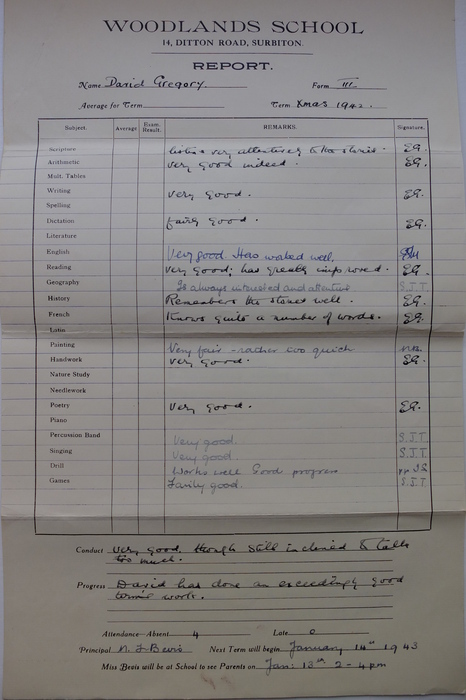 WOODLANDS SCHOOL
14, DITTON ROAD, SURBITON.
REPORT.
Name David Gregory. Form III
Average for Term Term Xmas 1942.
Subject. Average Exam. Result. REMARKS. Signature.
Scripture listens very attentively to the stories. EG.
Arithmetic Very good indeed. EG.
Mult. Tables
Writing Very good. EG.
Spelling
Dictation fairly good. EG.
Literature
English Very good. Has worked well.
Reading Very good; has greatly improved. EG.
Geography Is always interested and attentive S.J.T.
History Remembers the stories well. EG.
French Knows quite a number of words. EG.
Latin
Painting Very fair - rather too quick
Handwork Very good. EG.
Nature Study
Needlework
Poetry Very good. EG.
Piano
Percussion Band Very good. S.J.T.
Singing Very good. S.J.T.
Drill Works well Good progress
Games Fairly good. S.J.T.
Conduct Very good, though still inclined to talk
too much.
Progress David has done an exceedingly good
term's work.
Attendance—Absent 4 Late 0
Principal M. J. Bevis Next Term will begin January 14th 1943
Miss Bevis will be at School to see Parents on Jan: 13th 2-4 pm